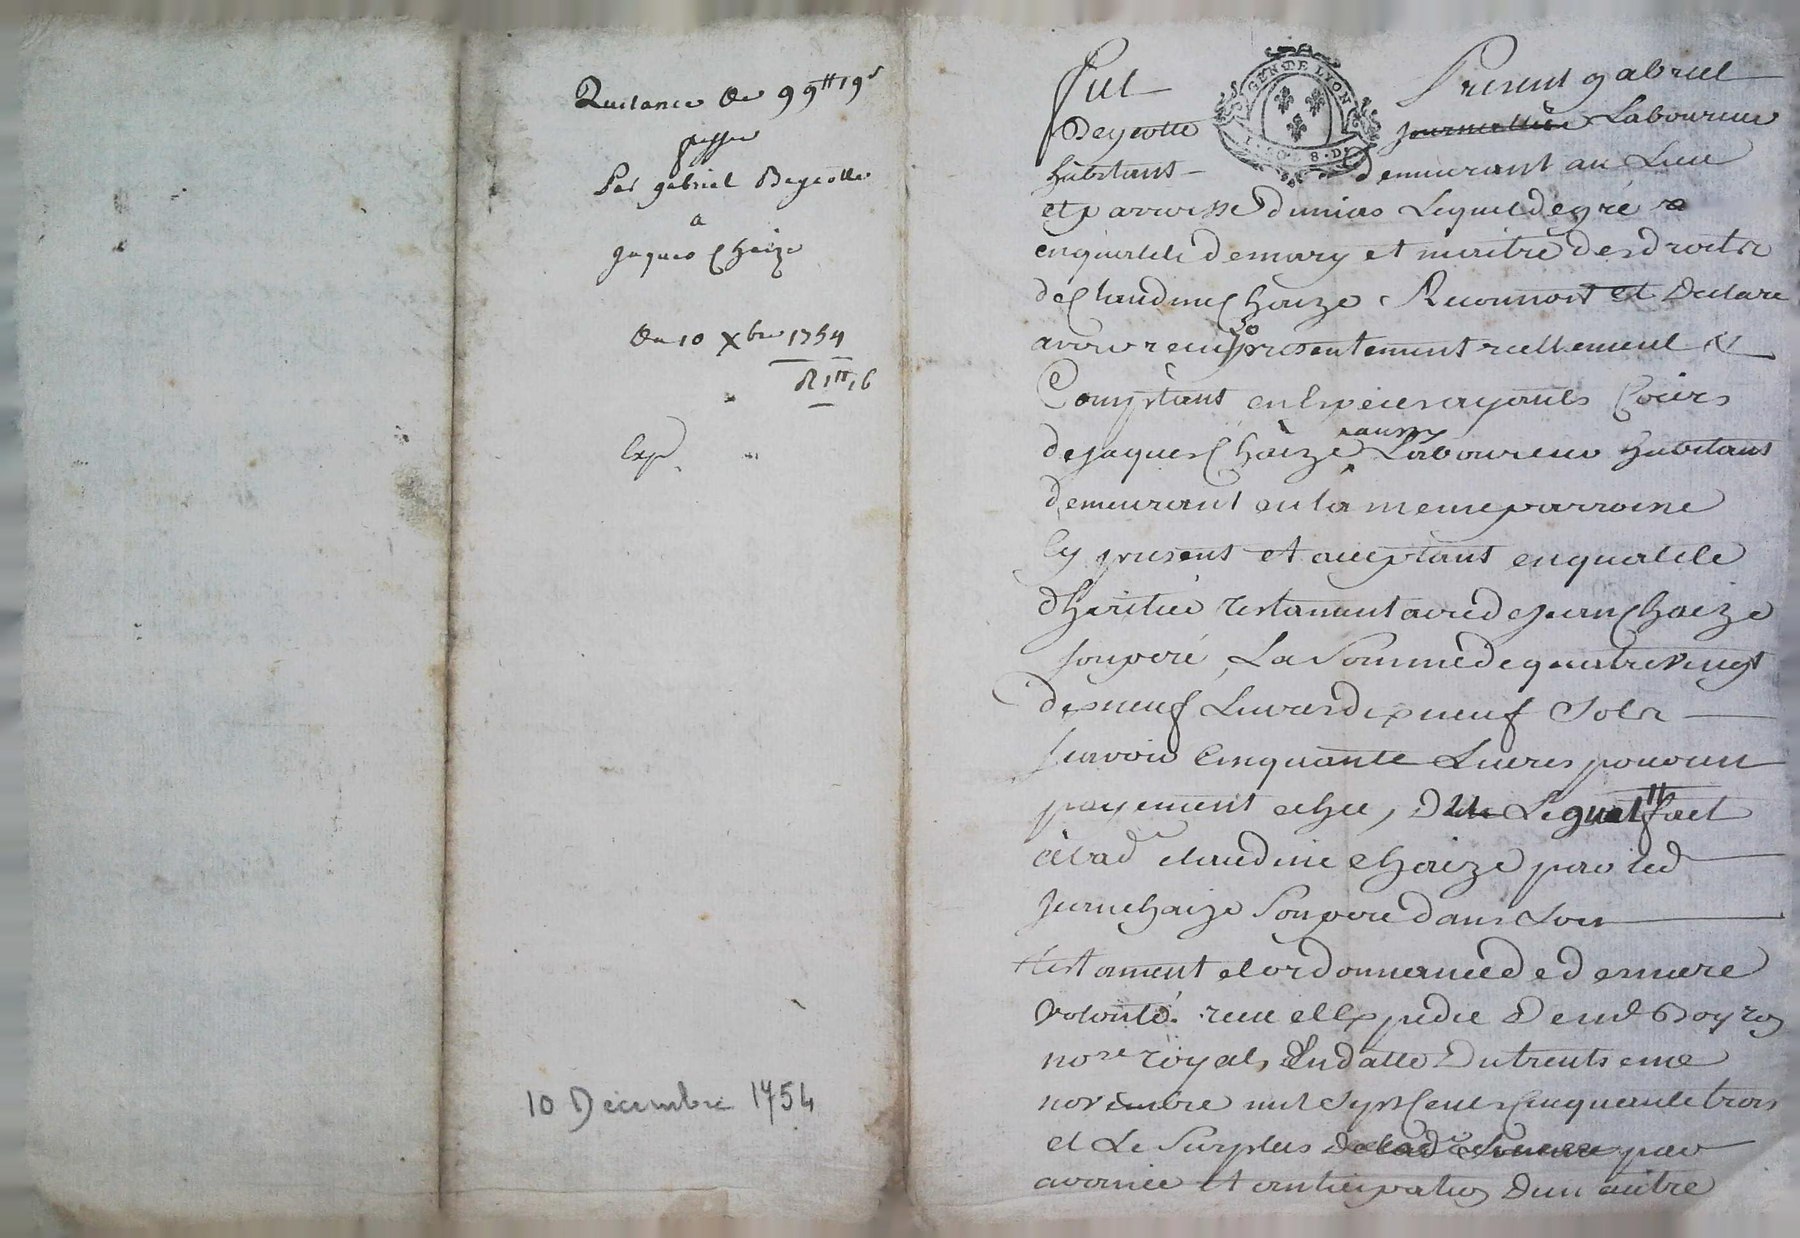 Quitance de 99ᵗᵗ 19ˢ
passée
Par gabriel Beycotte
a
jaques Chaize
Du 10 Xbre 1754
1ᵗᵗ 16
Exp
10 Décembre 1754
Fut Present gabriel
Beycotte journallier Laboureur
habitant demeurant au Lieu
et parroisse dunias Lequel de gré
en qualité de mary et maitre des droits
de Claudine Chaize Reconnoit et Declare
avoir receu presentement reellement &
Comptant en Especes ayants Cours
de jaques Chaize aussy Laboureur habitant
demeurant en la meme parroisse
Cy present et acceptant en qualité
d'héritié testamentaire de jean Chaize
son peré, La Somme de quatre vingt
dixneuf Livres dixneuf Sols
scavoir Cinquante Livres pour un
payement echu, Du Legual fait
à lad claudine chaize par led
jean chaize Son pere dans Son
testament et ordonnance de derniere
volonté receu et Expedié De me Boyron
nore royal, En datte Du trentieme
novembre mil Sept Cent Cinquante trois
et Le Surplus De lad Somme par
avance et anticipation Dun autre